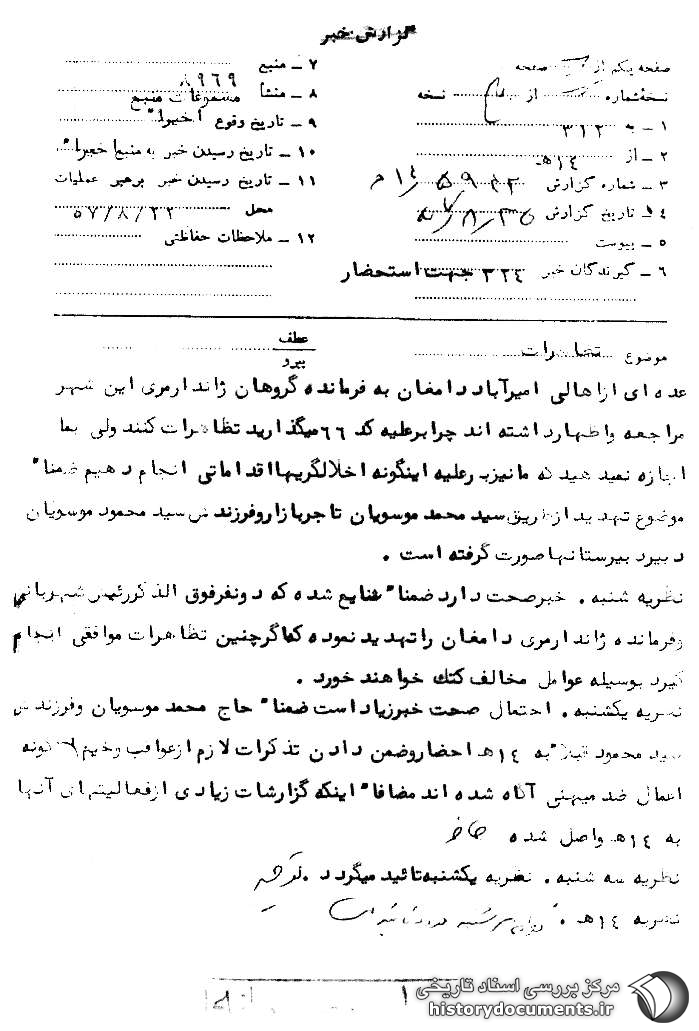 گزارش خبر
صفحه یکم از صفحه
نسخه شماره از نسخه
۱ - به ۳۱۲
۲ - از ۱۴ﻫ
۳ - شماره گزارش
۴ - تاریخ گزارش
۵ - پیوست
۶ - گیرندگان خبر ۳۲۴ جهت استحضار
۷ - منبع ۸۹۶۹
۸ - منشأ مسموعات منبع
۹ - تاریخ وقوع اخیرا"
۱۰ - تاریخ رسیدن خبر به منبع اخیرا"
۱۱ - تاریخ رسیدن خبر برهبر عملیات
محل ۵۷/۸/۲۲
۱۲ - ملاحظات حفاظتی
موضوع تظاهرات
عطف
پیرو
عده ای ازاهالی امیرآباد دامغان به فرمانده گروهان ژاندارمری این شهر
مراجعه واظهارداشته اند چرابرعلیه کد ۶۶ میگذارید تظاهرات کنند ولی بما
اجازه نمیدهید که مانیزبرعلیه اینگونه اخلالگریهااقداماتی انجام دهیم ضمنا"
موضوع تهدید ازطریق سید محمد موسویان تاجربازاروفرزندش سید محمود موسویان
دبیردبیرستانهاصورت گرفته است .
نظریه شنبه . خبرصحت دارد ضمنا" شایع شده که دونفرفوق الذکررئیس شهربانی
وفرمانده ژاندارمری دامغان راتهدید نموده که اگرچنین تظاهرات موافقی انجام
گیرد بوسیله عوامل مخالف کتک خواهند خورد .
نظریه یکشنبه . احتمال صحت خبرزیاداست ضمنا" حاج محمد موسویان وفرزندش
سید محمود قبلا" به ۱۴ﻫ احضاروضمن دادن تذکرات لازم ازعواقب وخیم اینگونه
اعمال ضد میهنی آگاه شده اند مضافا" اینکه گزارشات زیادی ازفعالیتهای آنها
به ۱۴ﻫ واصل شده
نظریه سه شنبه . نظریه یکشنبه تائید میگردد .
نظریه ۱۴ﻫ .
مرکز بررسی اسناد تاریخی
historydocuments.ir